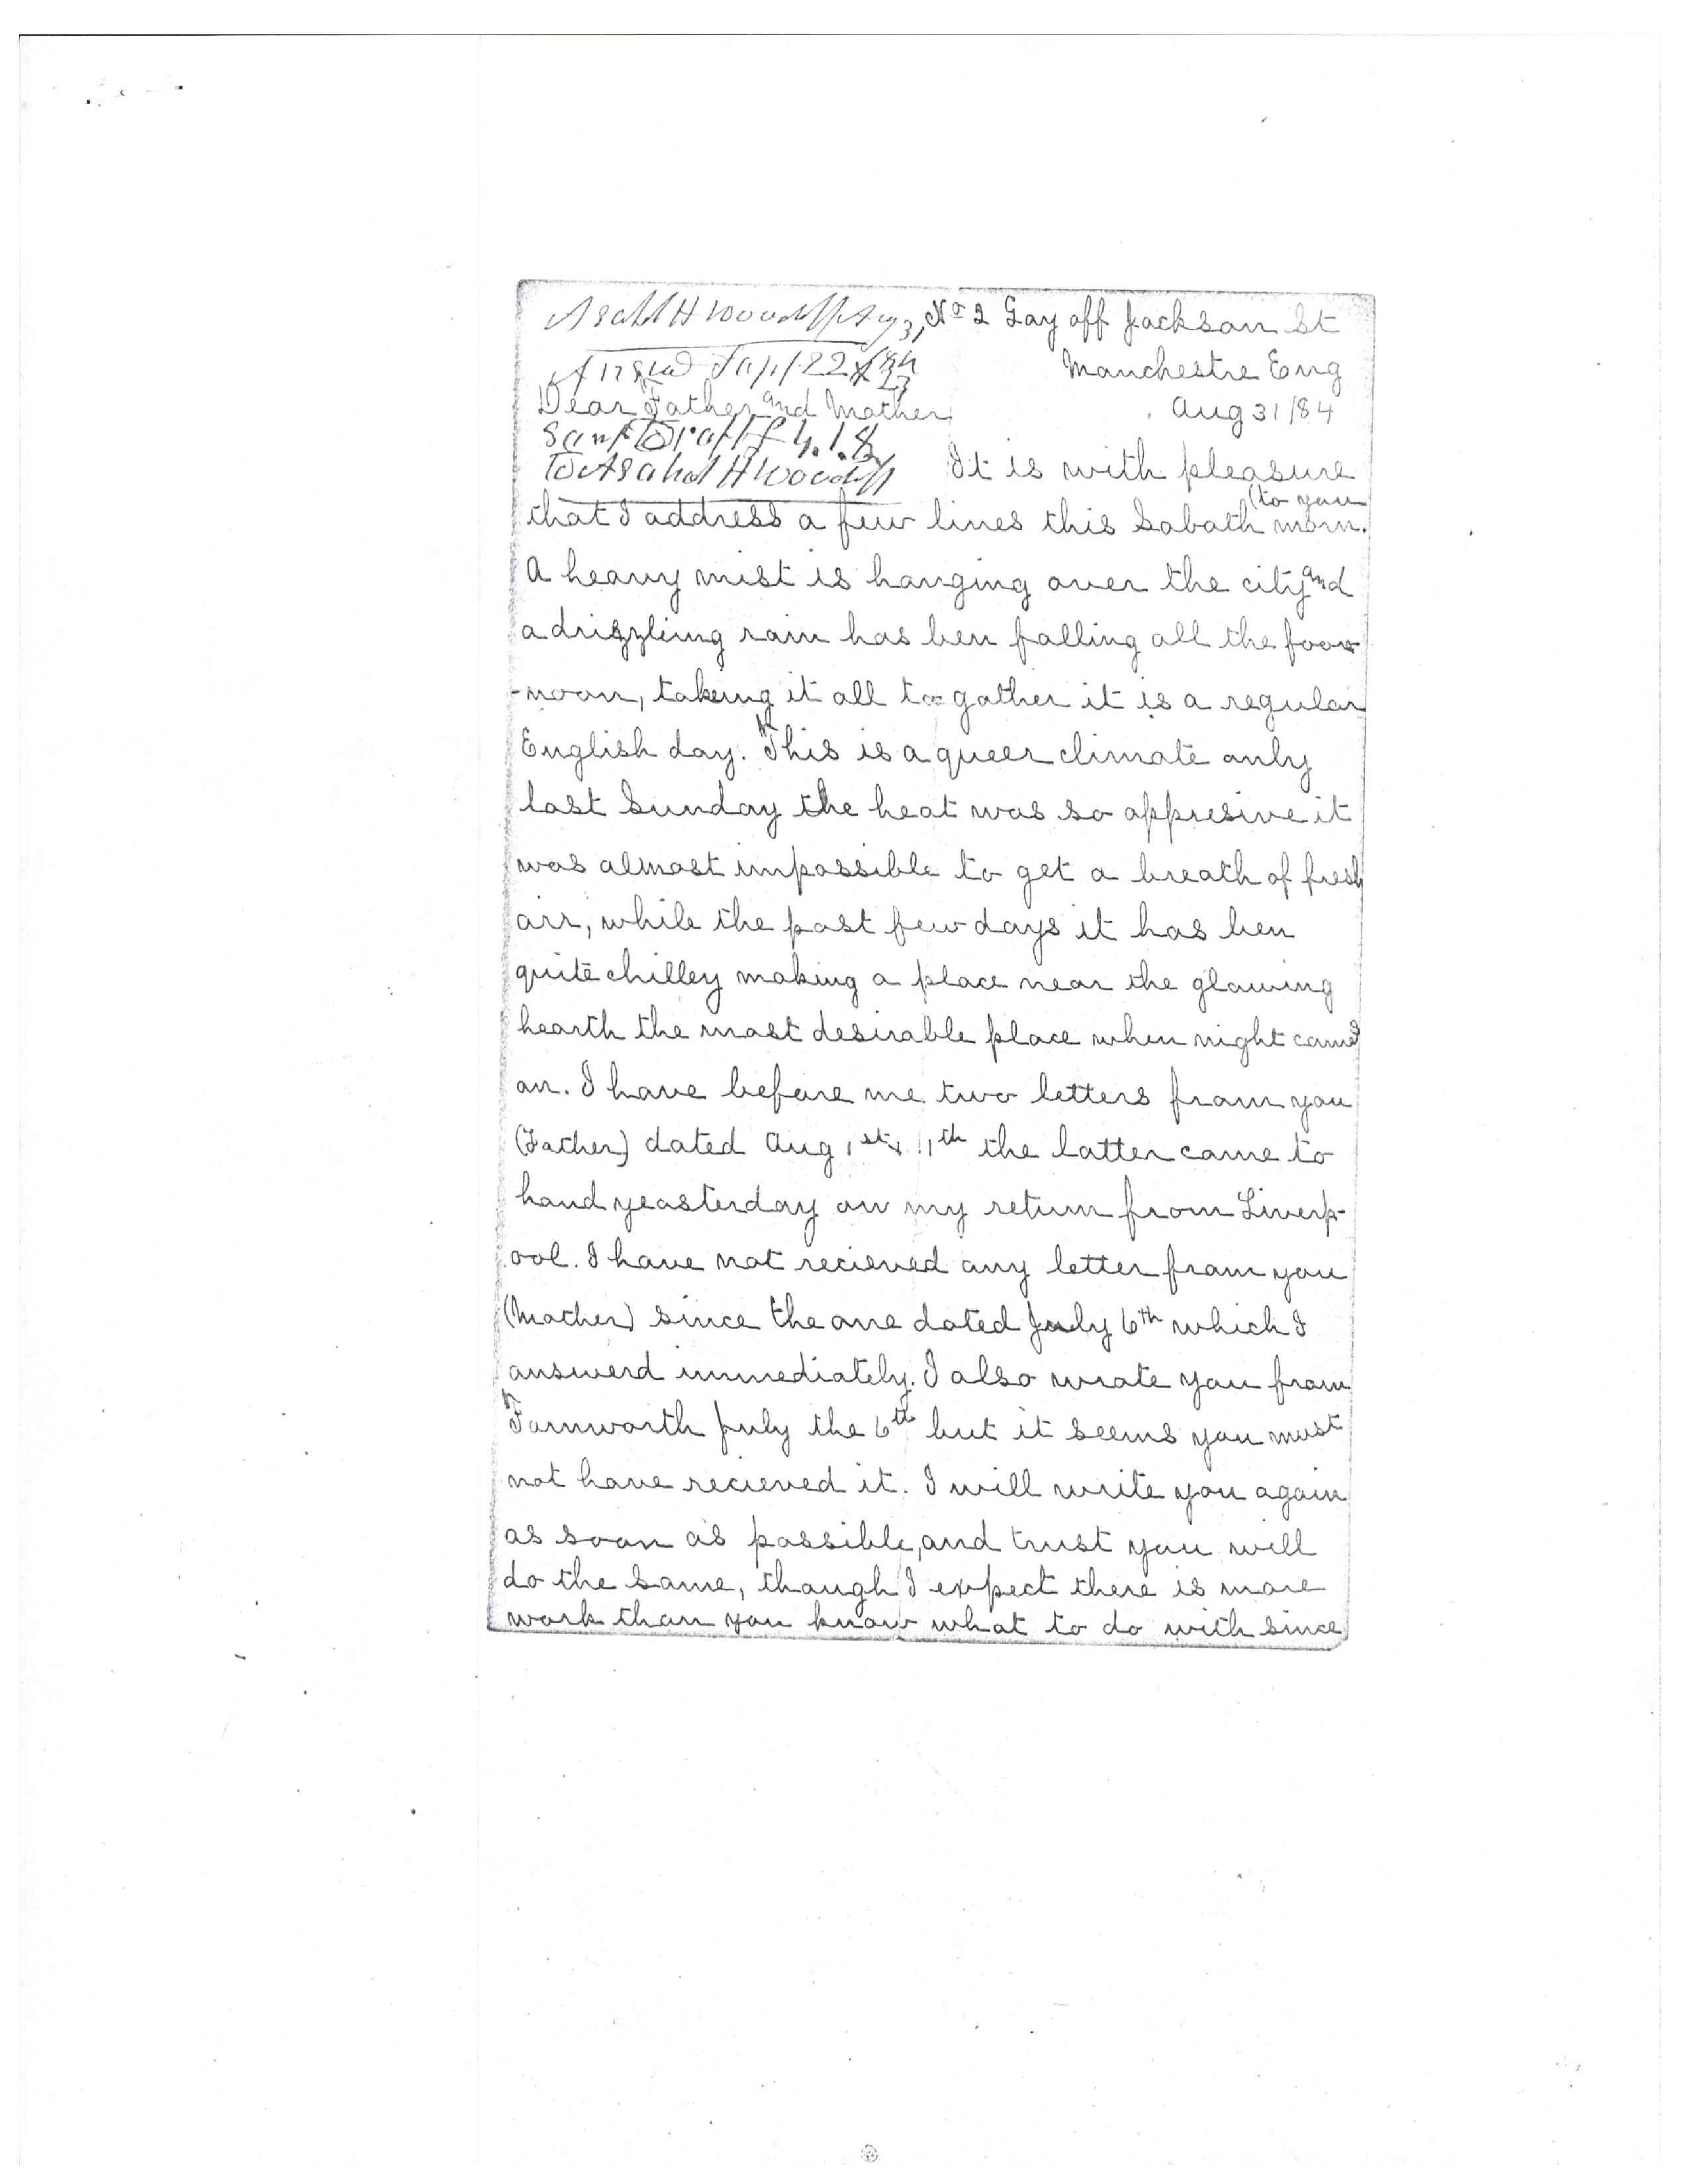 Asahel H Woodruff Aug 3,
No 2 Gay off Jackson St
Manchestre Eng
Aug 31/84
Dear Father and Mother
Sent Draft £ 4.1.8
to Asahel H Woodruff
It is with pleasure
that I address a few lines this Sabath morn. (to you
A heavy mist is hanging over the city and
a drizzling rain has ben falling all the foor
-noon, takeing it all to gather it is a regular
English day. This is a queer climate only
last Sunday the heat was so oppresive it
was almost impossible to get a breath of fresh
air, while the past few days it has ben
quite chilley making a place near the glowing
hearth the most desirable place when night came
on. I have before me two letters from you
(Father) dated Aug 1st & 11th the latter came to
hand yeasterday on my return from Liverp-
ool. I have not recieved any letter from you
(Mother) since the one dated July 6th which I
answerd immediately. I also wrote you from
Farnworth July the 6th but it seems you must
not have recieved it. I will write you again
as soon as possible, and trust you will
do the same, though I expect there is more
work than you know what to do with since